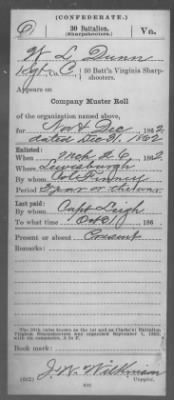 (CONFEDERATE.)
D 30 Battalion. Va.
(Sharpshooters.)
W L Dunn
Co. C, 30 Batt'n Virginia Sharp-
shooters.
Appears on
Company Muster Roll
of the organization named above,
for Nov & Dec, 1862
dated Dec 31, 1862
Enlisted:
When Mch 26, 1862
Where Lewisburgh
By whom Col Finney
Period 3 years or the war
Last paid:
By whom Capt Leigh
To what time Oct 31, 186
Present or absent Present
Remarks:
Book mark:
J. W. Wilkinson
(642) Copyist.